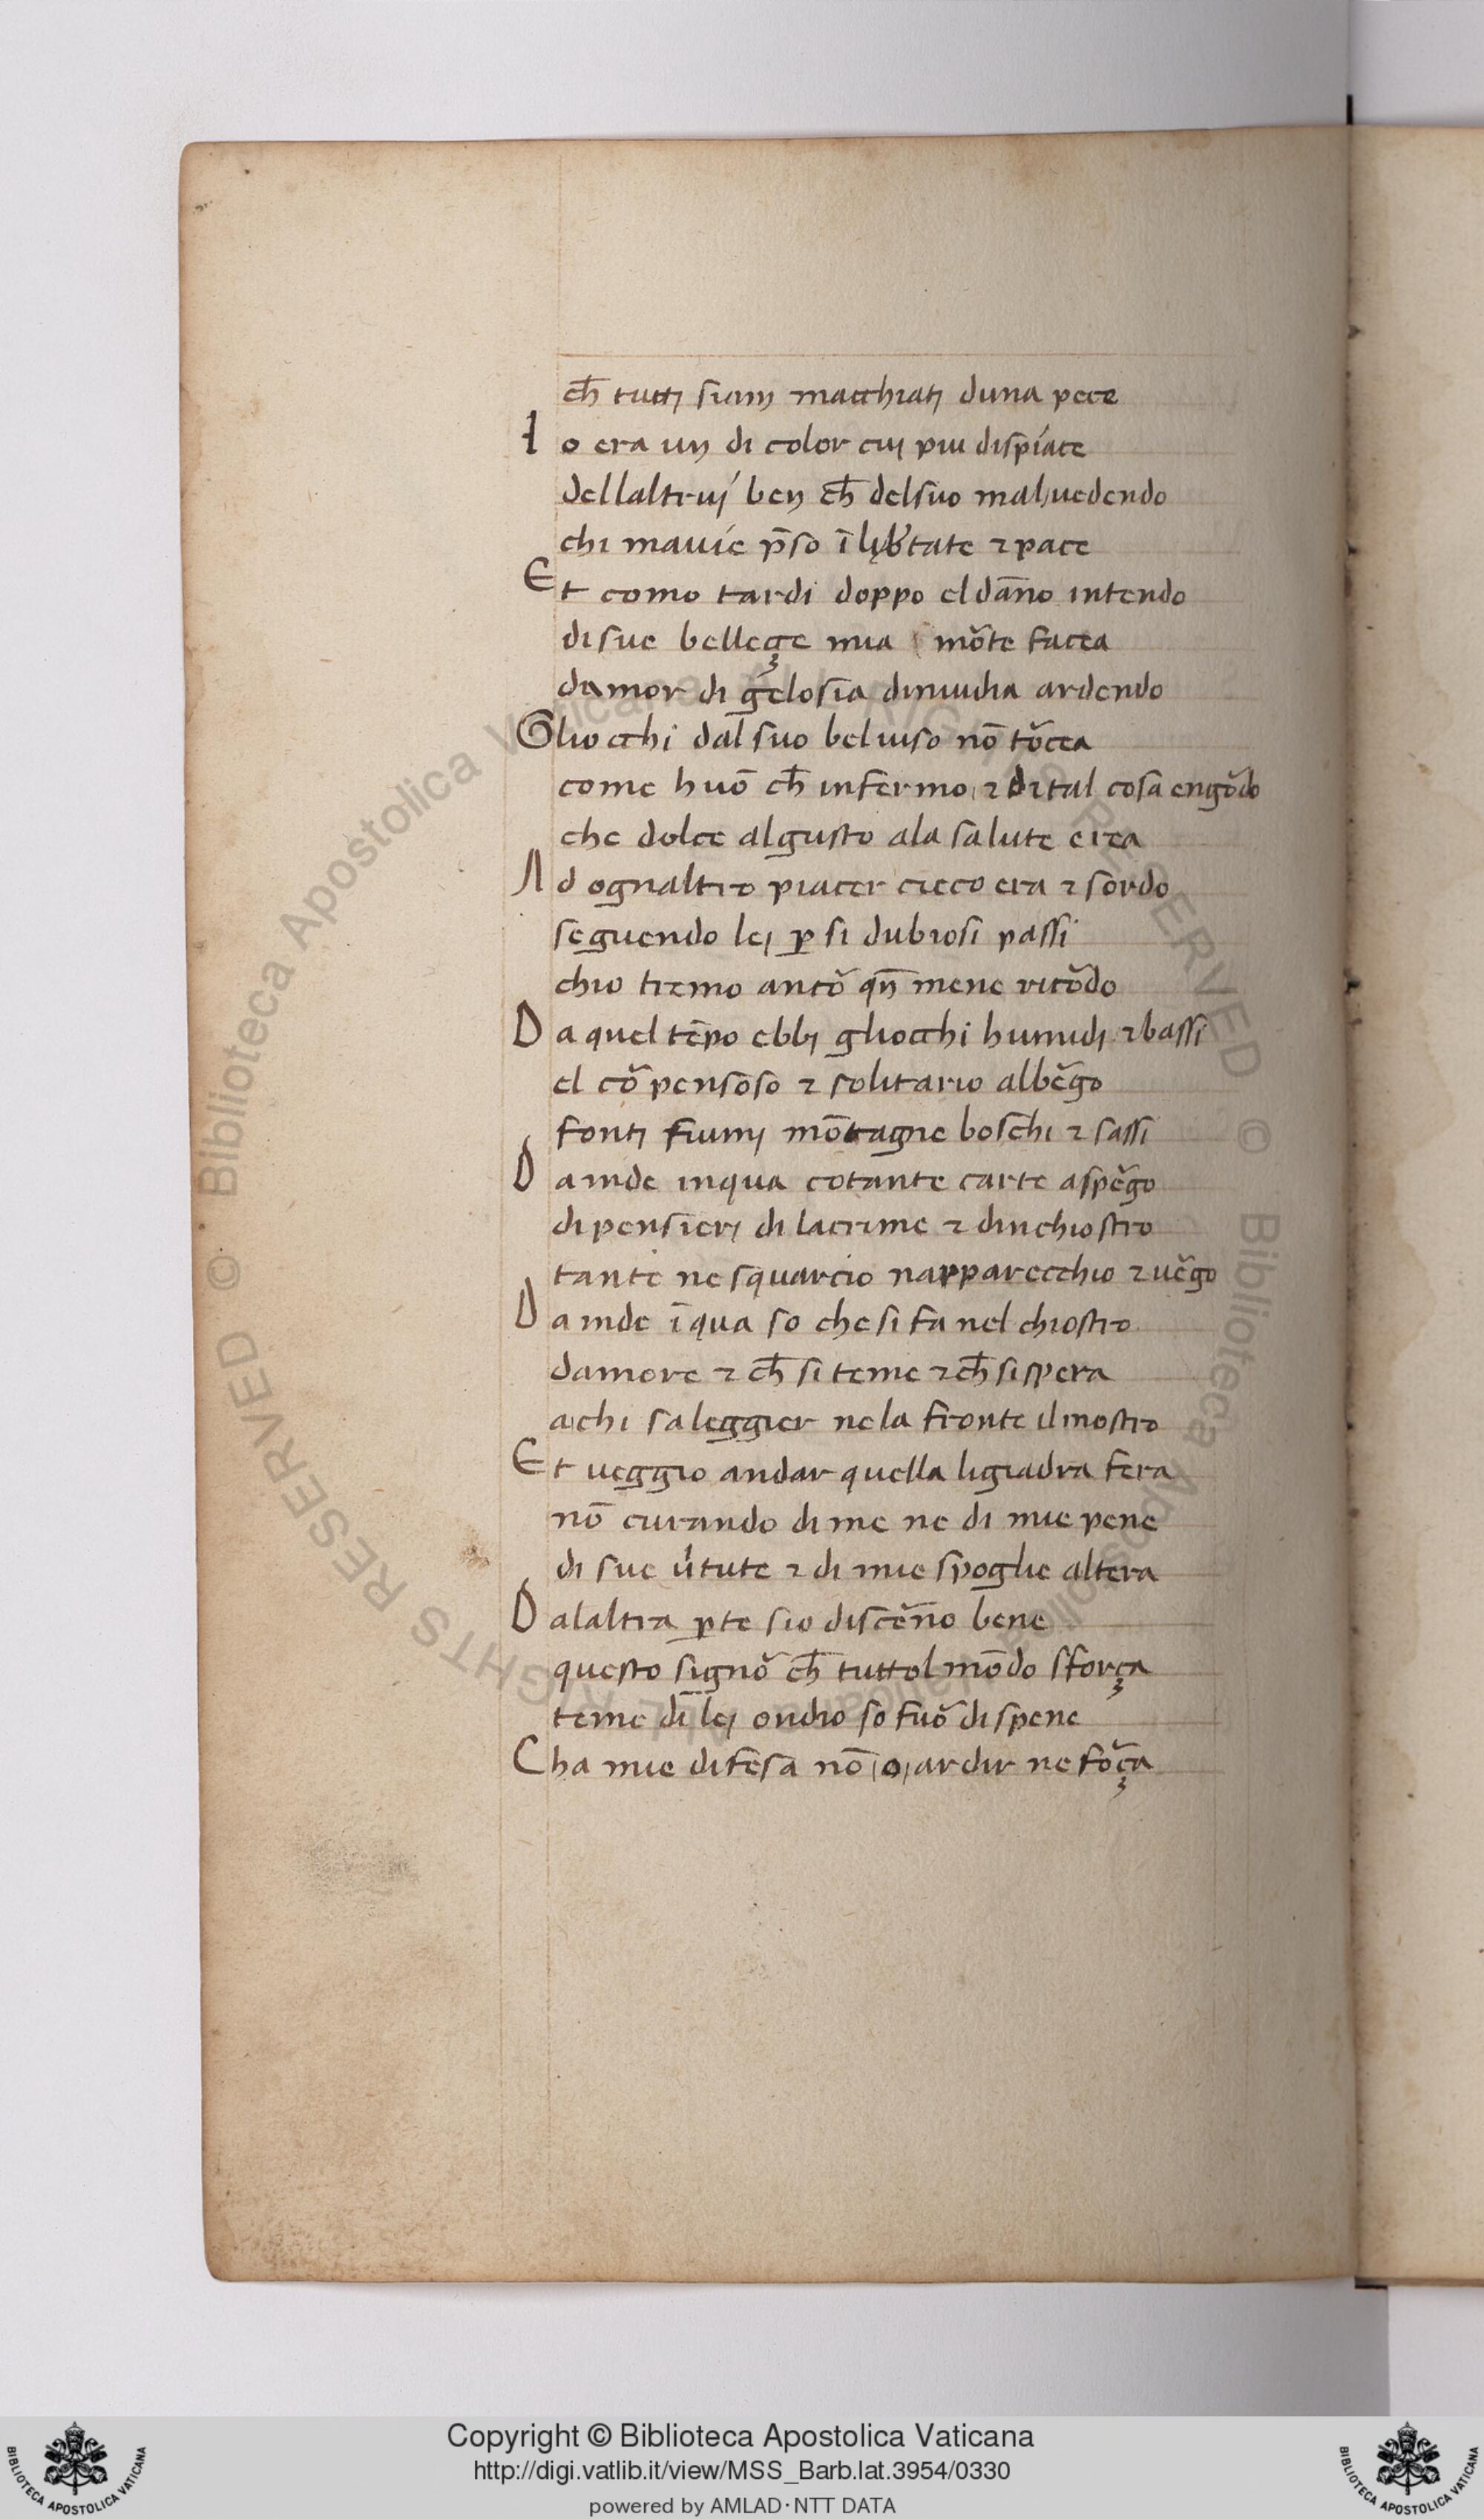 ch̄ tuttj siam macchiatj duna pece
Io era un di color cuj piu dispiace
dellaltruj ben ch̄ delsuo mal uedendo
chi mauie p̄so ī lib̓tate ⁊ pace
Et como tardi doppo el dāno intendo
di sue belleçe mia mo͂te facea
damor di gelosia dinuidia ardendo
Gliocchi dal suo bel uiso nō to͂cea
come huō ch̄ infermo ⁊ di tal cosa engo͂do
che dolce al gusto ala salute e rea
Ad ognaltro piacer cieco era ⁊ sordo
seguendo lej ꝑ si dubiosi passi
chio tremo anco͂ qn̄ mene rico͂do
Da quel tēpo ebbj gliocchi humidj ⁊ bassi
el co͂ pensoso ⁊ solitario albe͂go
fontj fiumj mōtagne boschi ⁊ sassi
Da inde inqua cotante carte aspe͂go
di pensierj di lacrime ⁊ dinchiostro
tante ne squarcio napparecchio ⁊ ue͂go
Da inde ī qua so che si fa nel chiostro
damore ⁊ ch̄ si teme ⁊ ch̄ si spera
a chi sa leggier ne la fronte il mostro
Et ueggio andar quella ligiadra fera
nō curando di me ne di mie pene
di sue u̓tute ⁊ di mie spoglie altera
Dalaltra ꝑte sio disce͂no bene
questo signo͂ ch̄ tuttol mōdo sforça
teme di lej ondio so fuo͂ di spene
Cha mie difesa nō o ardir ne fo͂ça
Copyright © Biblioteca Apostolica Vaticana
http://digi.vatlib.it/view/MSS_Barb.lat.3954/0330
powered by AMLAD·NTT DATA